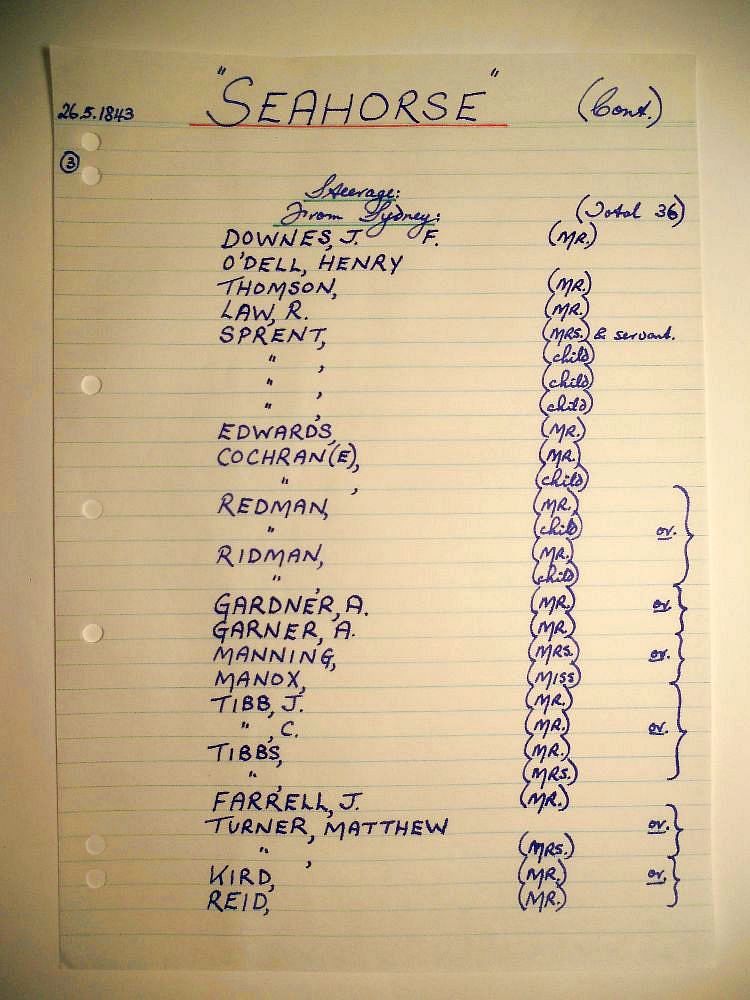 26.5.1843 "SEAHORSE" (Cont.)
③
Steerage:
From Sydney: (Total 36)
DOWNES, J. F. (MR.)
O'DELL, HENRY
THOMSON, (MR.)
LAW, R. (MR.)
SPRENT, (MRS.) & servant.
" , (child)
" , (child)
" , (child)
EDWARDS, (MR.)
COCHRAN(E), (MR.)
" , (child)
REDMAN, (MR.)
" (child) or.
RIDMAN, (MR.)
" , (child)
GARDNER, A. (MR.) or.
GARNER, A. (MR.)
MANNING, (MRS. or.
MANOX, (MISS)
TIBB, J. (MR.)
" , C. (MR.) or.
TIBBS, (MR.)
" , (MRS.)
FARRELL, J. (MR.)
TURNER, MATTHEW or.
" , (MRS.)
KIRD, (MR.) or.
REID, (MR.)